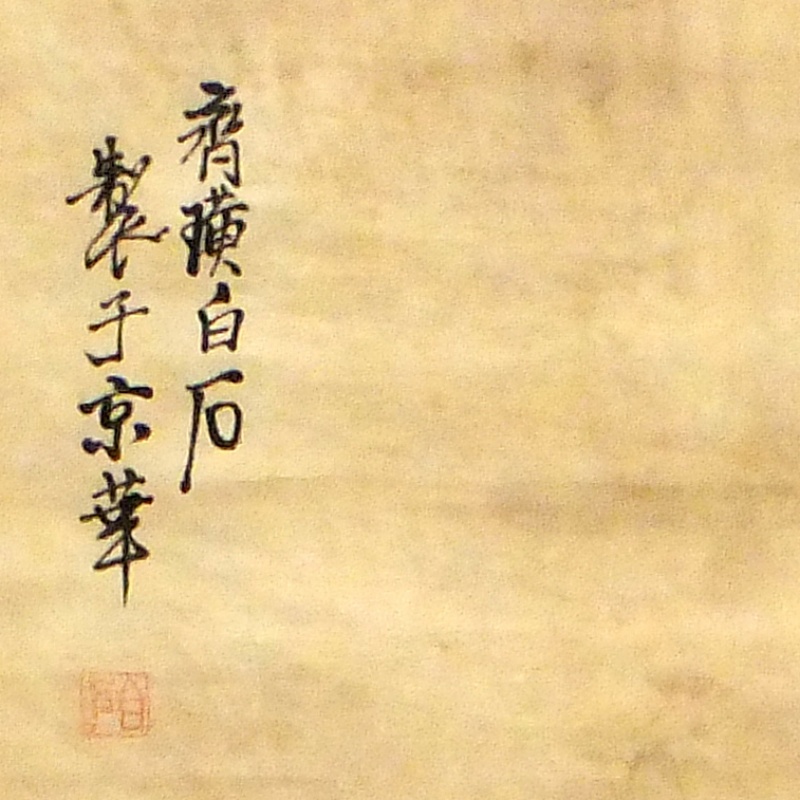 齊璜白石
製于京華